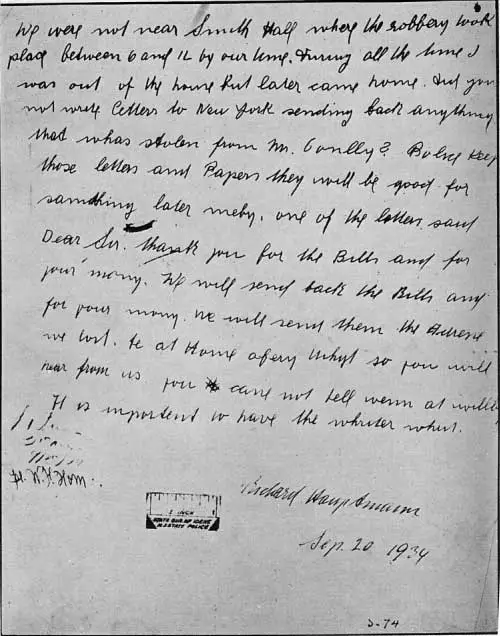 We were not near Smith Hall where the robbery took
place between 6 and 12 by our time. During all the time I
was out of the house but later came home. Did you
not write letters to New York sending back anything
that whas stolen from Mr. Conlly? Police keep
those letters and Papers they will be good for
something later meby. one of the letters said
Dear Sir. thank you for the Bills and for
your mony. We will send back the Bills and
for your mony. We will send them the
we lost. be at Home so you will
hear from us you cane not tell wenn at
It is importent to have the whriter
Richard Hauptmann
Sep. 20 1934
1 INCH
STATE BUR. OF IDENT.
N.J. STATE POLICE
S-74